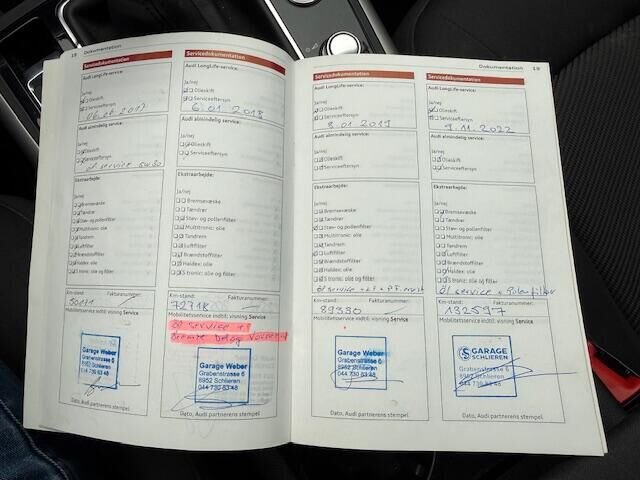 18 Dokumentation
Servicedokumentation
Audi LongLife-service:
Ja/nej
Olieskift
Serviceeftersyn
06.06.2017
Audi almindelig service:
Olieskift
Serviceeftersyn
öl service 5w30
Ekstraarbejde:
Ja/nej
Bremsevæske
Tændrør
Støv- og pollenfilter
Multitronic: olie
Tandrem
Luftfilter
Brændstoffilter
Haldex: olie
S tronic: olie og filter
Km-stand: Fakturanummer:
Mobilitetsservice indtil: visning Service
Garage Weber
Grabenstrasse 6
8952 Schlieren
044 730 63 48
Dato, Audi partnerens stempel
Servicedokumentation
Audi LongLife-service:
Ja/nej
Olieskift
Serviceeftersyn
6.01.2018
Audi almindelig service:
Olieskift
Serviceeftersyn
Ekstraarbejde:
Ja/nej
Bremsevæske
Tændrør
Støv- og pollenfilter
Multitronic: olie
Tandrem
Luftfilter
Brændstoffilter
Haldex: olie
S tronic: olie og filter
Km-stand: Fakturanummer:
72718
Mobilitetsservice indtil: visning Service
öl service + LF
Bremse Belag
Garage Weber
Grabenstrasse 6
8952 Schlieren
044 730 63 48
Dato, Audi partnerens stempel
Servicedokumentation
Audi LongLife-service:
Ja/nej
Olieskift
Serviceeftersyn
8.01.2019
Audi almindelig service:
Olieskift
Serviceeftersyn
Ekstraarbejde:
Ja/nej
Bremsevæske
Tændrør
Støv- og pollenfilter
Multitronic: olie
Tandrem
Luftfilter
Brændstoffilter
Haldex: olie
S tronic: olie og filter
öl service + LF + P.F.
Km-stand: Fakturanummer:
89330
Mobilitetsservice indtil: visning Service
Garage Weber
Grabenstrasse 6
8952 Schlieren
044 730 63 48
Dato, Audi partnerens stempel
Dokumentation 19
Servicedokumentation
Audi LongLife-service:
Ja/nej
Olieskift
Serviceeftersyn
9.11.2022
Audi almindelig service:
Olieskift
Serviceeftersyn
Ekstraarbejde:
Ja/nej
Bremsevæske
Tændrør
Støv- og pollenfilter
Multitronic: olie
Tandrem
Luftfilter
Brændstoffilter
Haldex: olie
S tronic: olie og filter
Öl service + Polenfilter
Km-stand: Fakturanummer:
132597
Mobilitetsservice indtil: visning Service
GARAGE
SCHLIEREN
Grabenstrasse 6
8952 Schlieren
044 730 63 48
Dato, Audi partnerens stempel